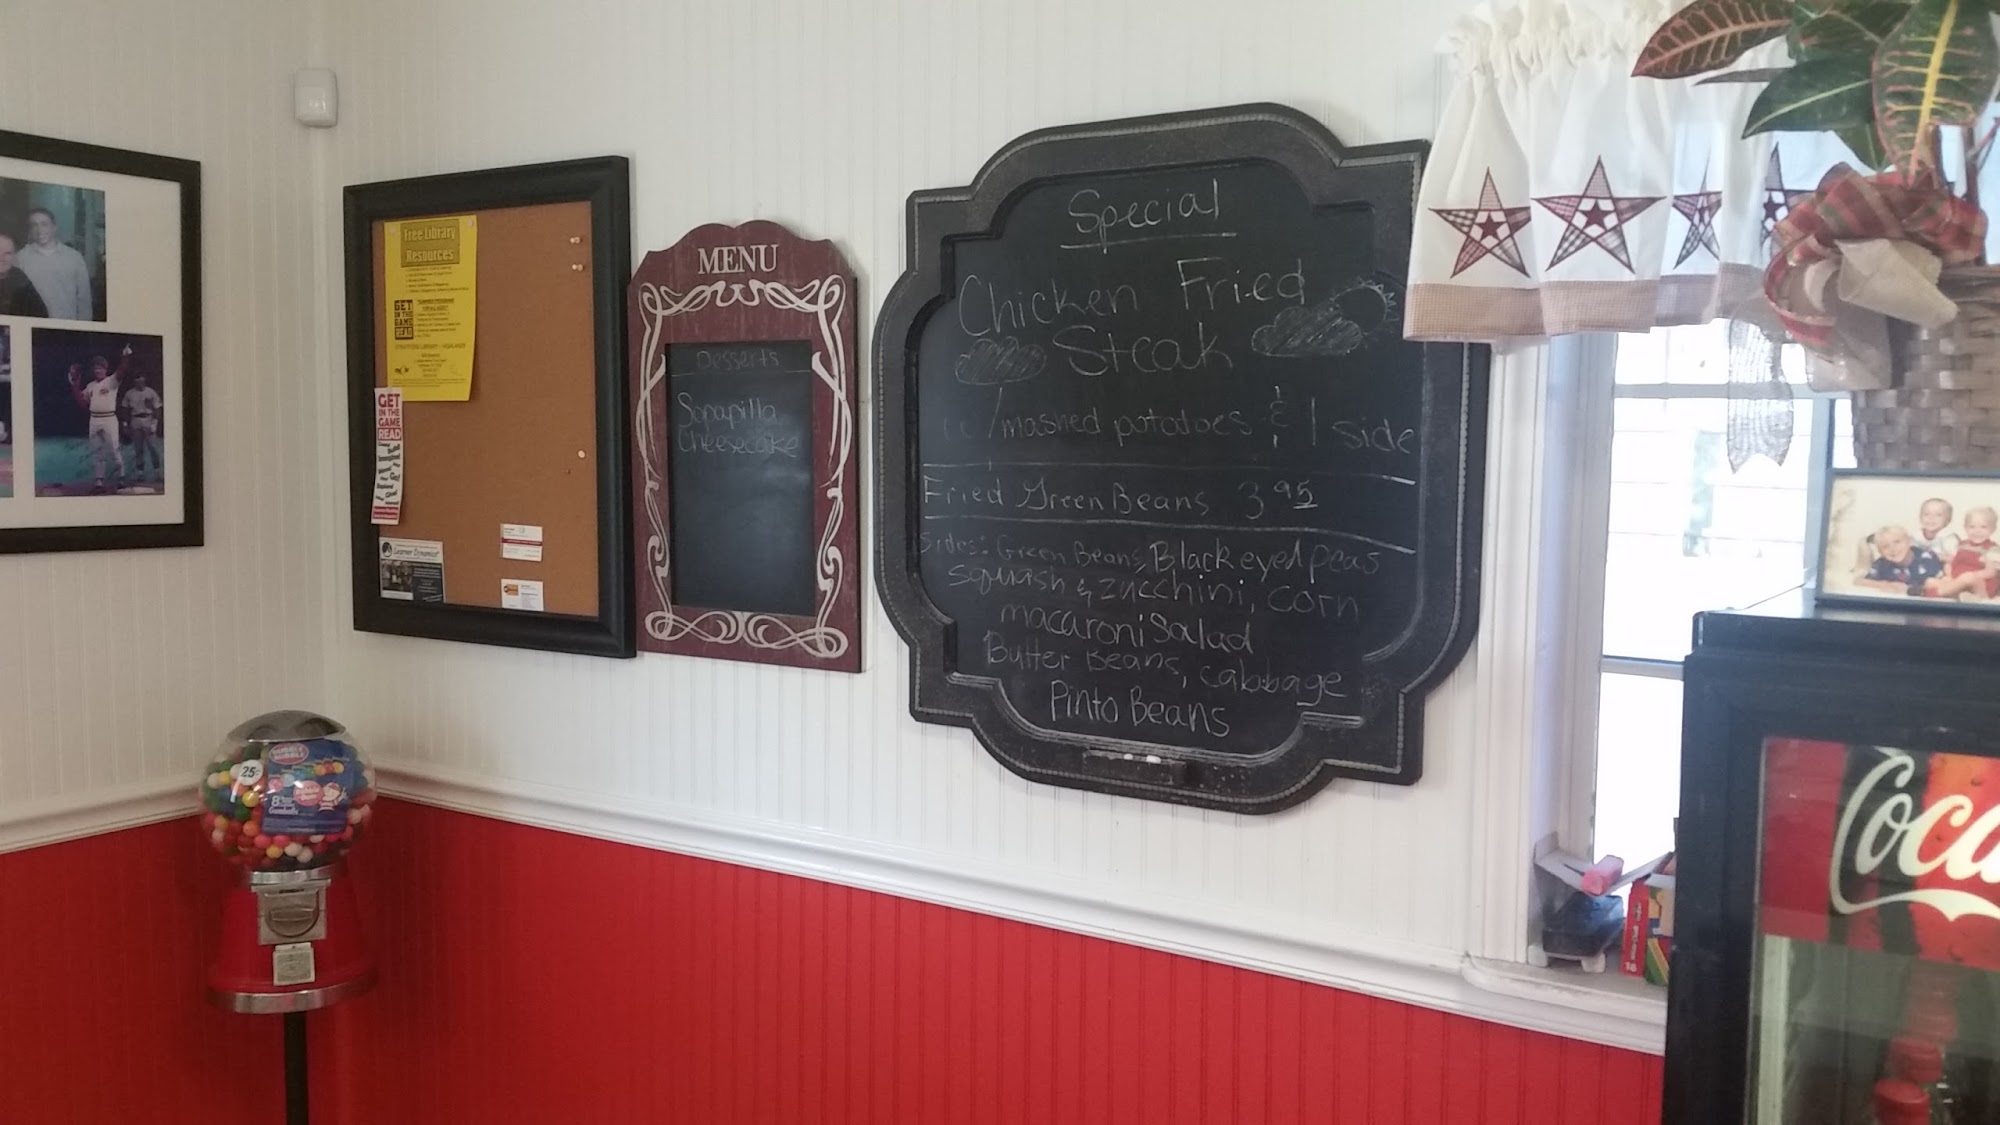 Free Library
Resources
GET
IN THE
GAME
READ
GET
IN THE
GAME
READ
Learner Dynamics
MENU
Desserts
Sopapilla
Cheesecake
Special
Chicken Fried
Steak
w/mashed potatoes & 1 side
Fried Green Beans 3 95
Sides: Green Beans, Black eyed peas
squash & zucchini, corn
macaroni salad
Butter Beans, cabbage
Pinto Beans
25¢
Coca